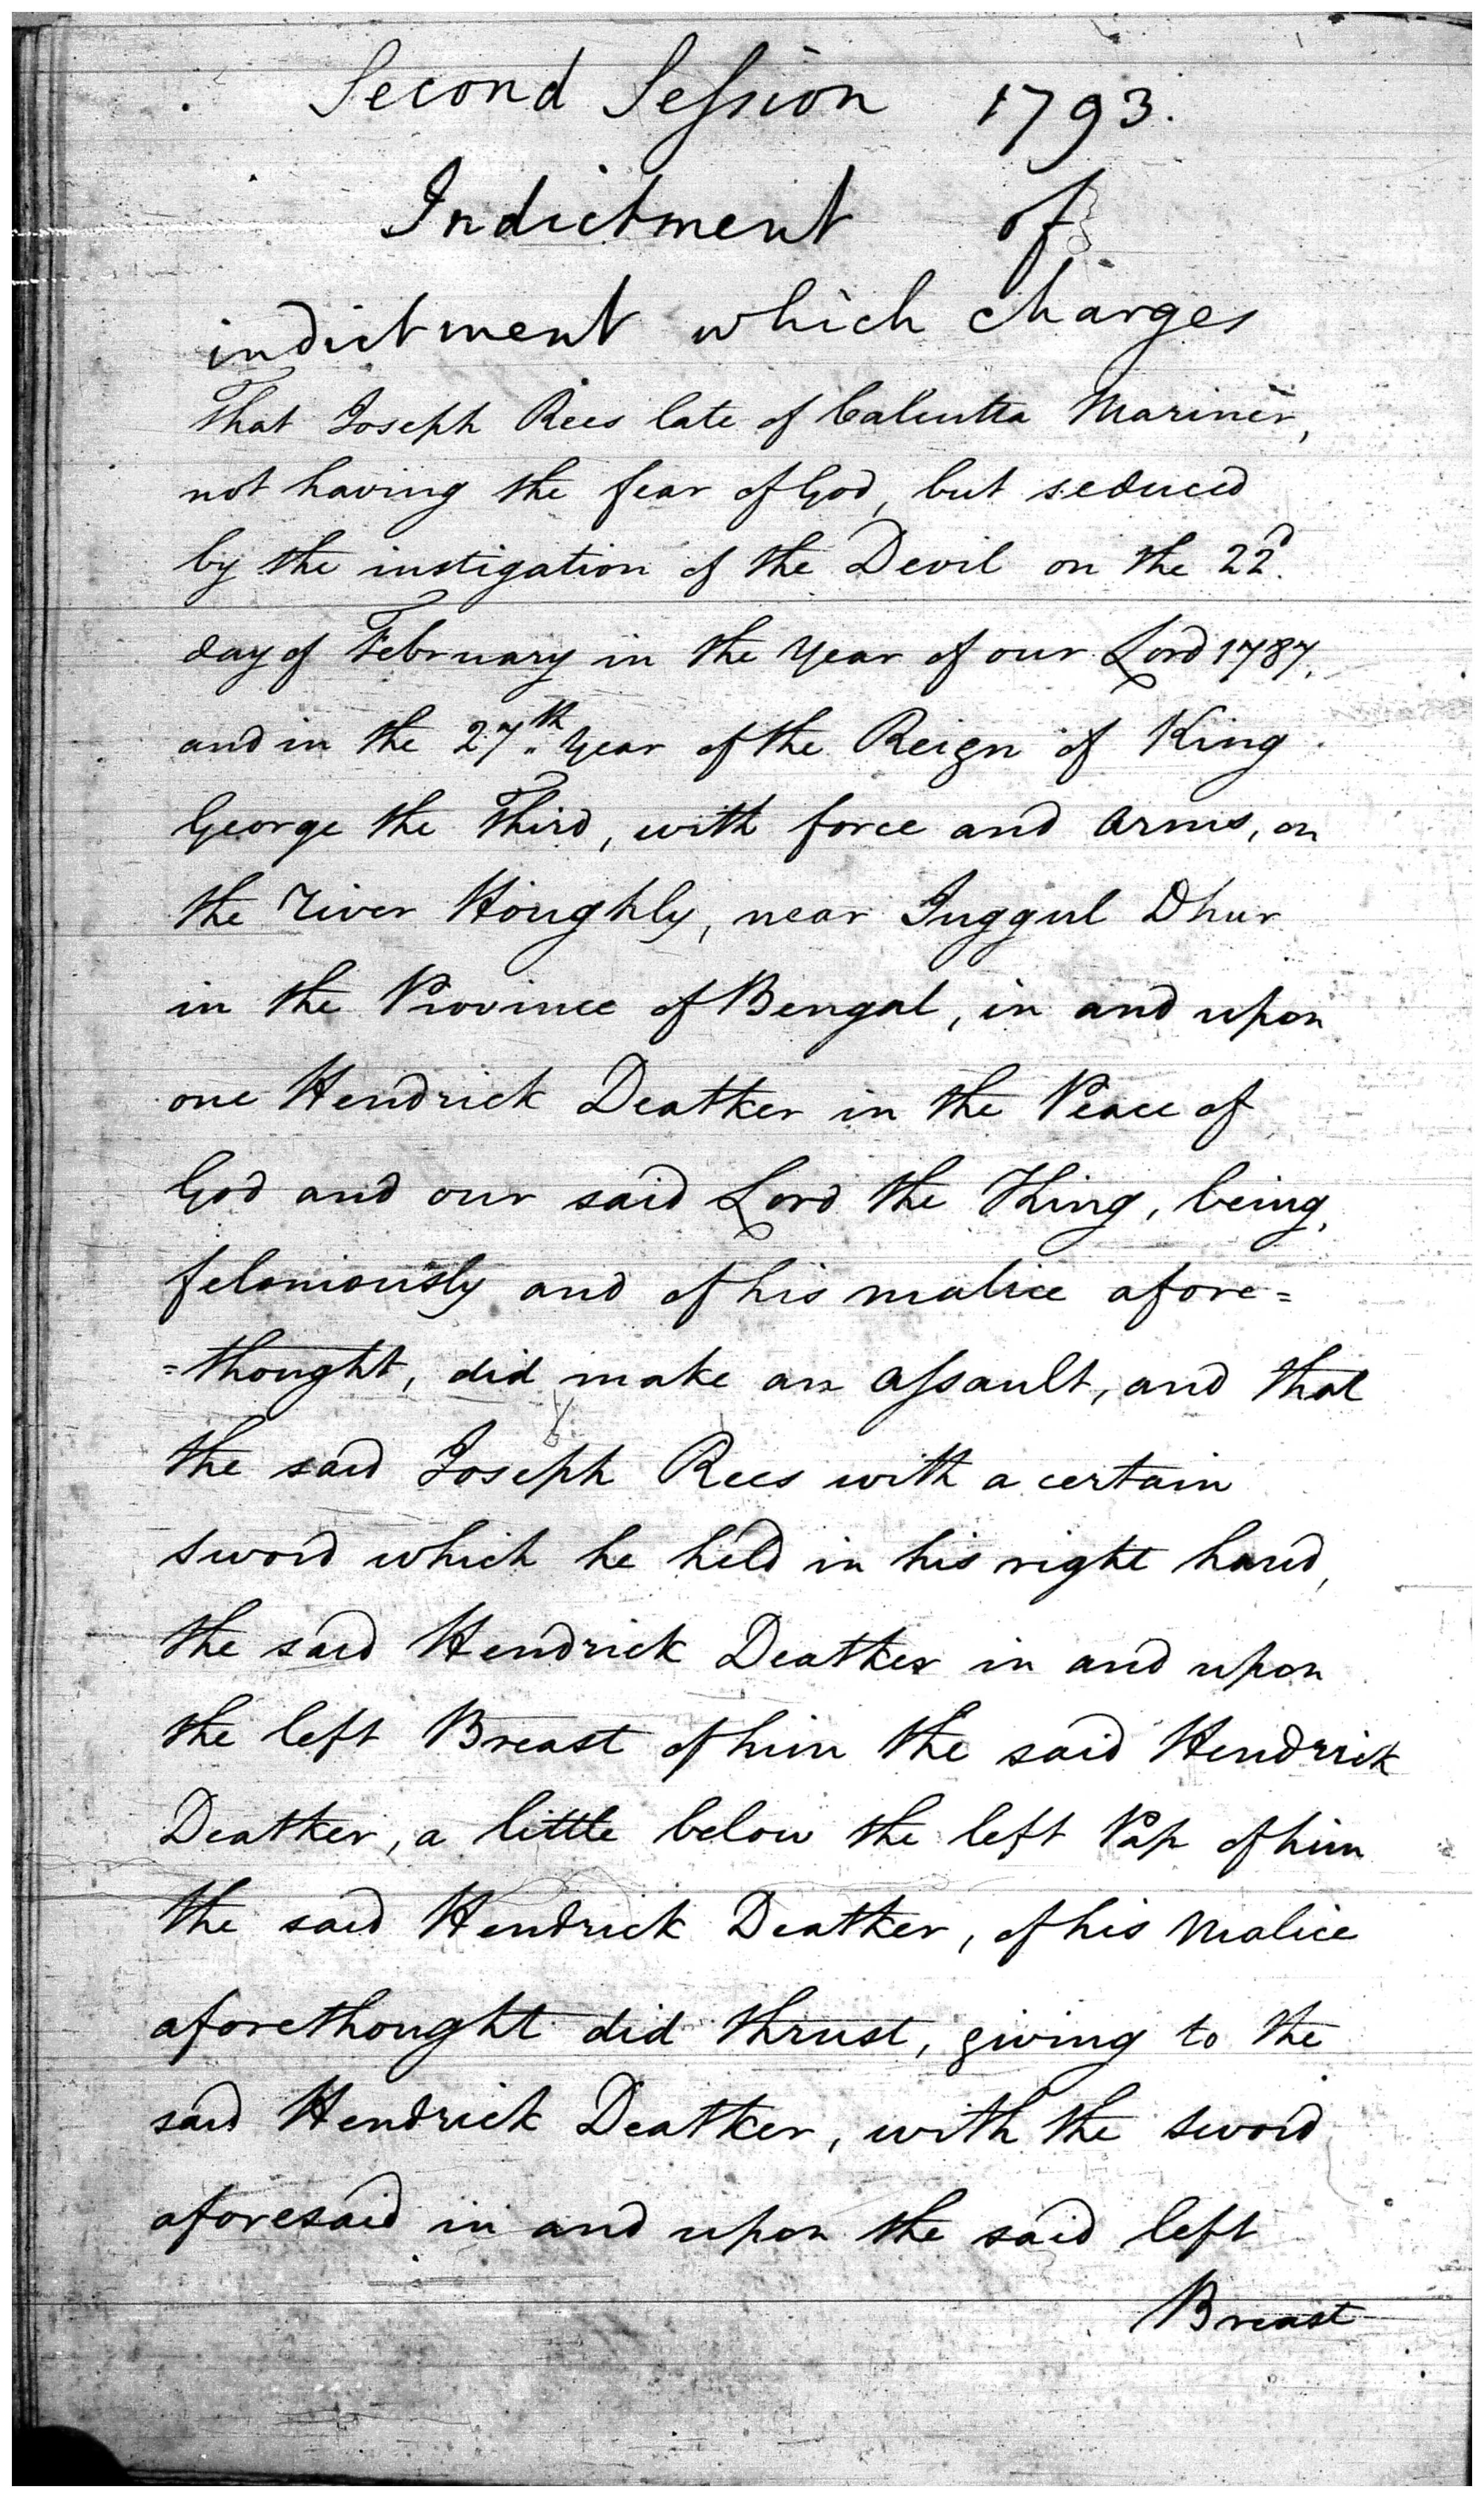 Second Session 1793.
Indictment of
indictment which charges
That Joseph Rees late of Calcutta Mariner,
not having the fear of God, but seduced
by the instigation of the Devil on the 22d.
day of February in the Year of our Lord 1787,
and in the 27th. Year of the Reign of King
George the Third, with force and Arms, on
the River Houghly, near Juggul Dhur
in the Province of Bengal, in and upon
one Hendrick Deatker in the Peace of
God and our said Lord the King, being,
feloniously and of his malice afore=
=thought, did make an assault, and that
the said Joseph Rees with a certain
sword which he held in his right hand,
the said Hendrick Deatker in and upon
the left Breast of him the said Hendrick
Deatker, a little below the left Pap of him
the said Hendrick Deatker, of his Malice
aforethought did thrust, giving to the
said Hendrick Deatker, with the sword
aforesaid in and upon the said left
Breast